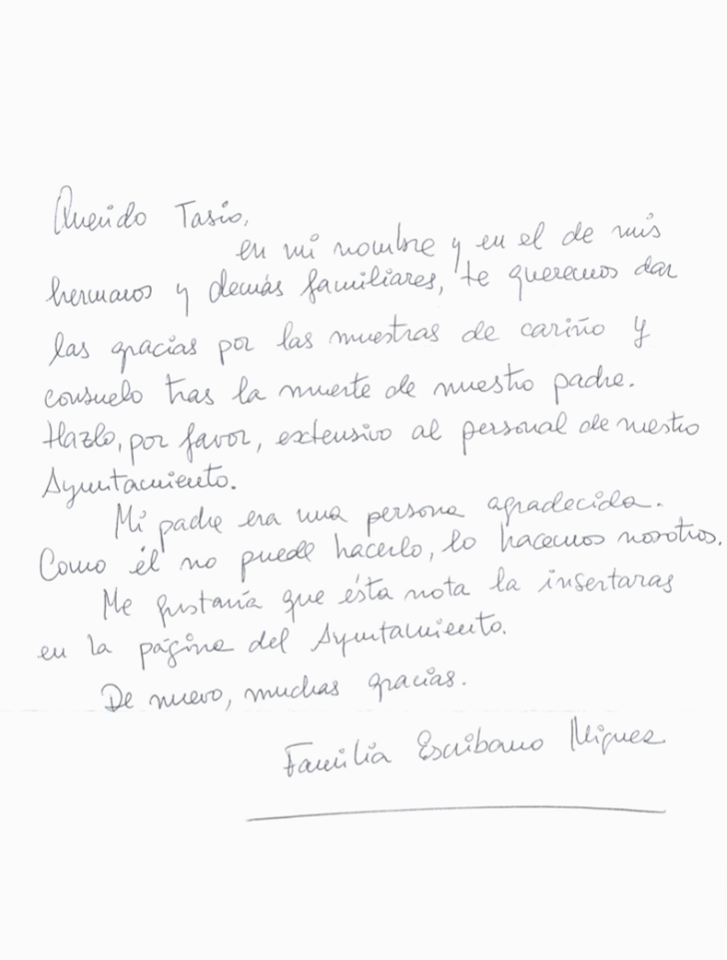 Querido Tasio,
en mi nombre y en el de mis
hermanos y demás familiares, te queremos dar
las gracias por las muestras de cariño y
consuelo tras la muerte de nuestro padre.
Hazlo, por favor, extensivo al personal de nuestro
Ayuntamiento.
Mi padre era una persona agradecida.
Como él no puede hacerlo, lo hacemos nosotros.
Me gustaría que ésta nota la insertaras
en la página del Ayuntamiento.
De nuevo, muchas gracias.
Familia Escribano Miguez